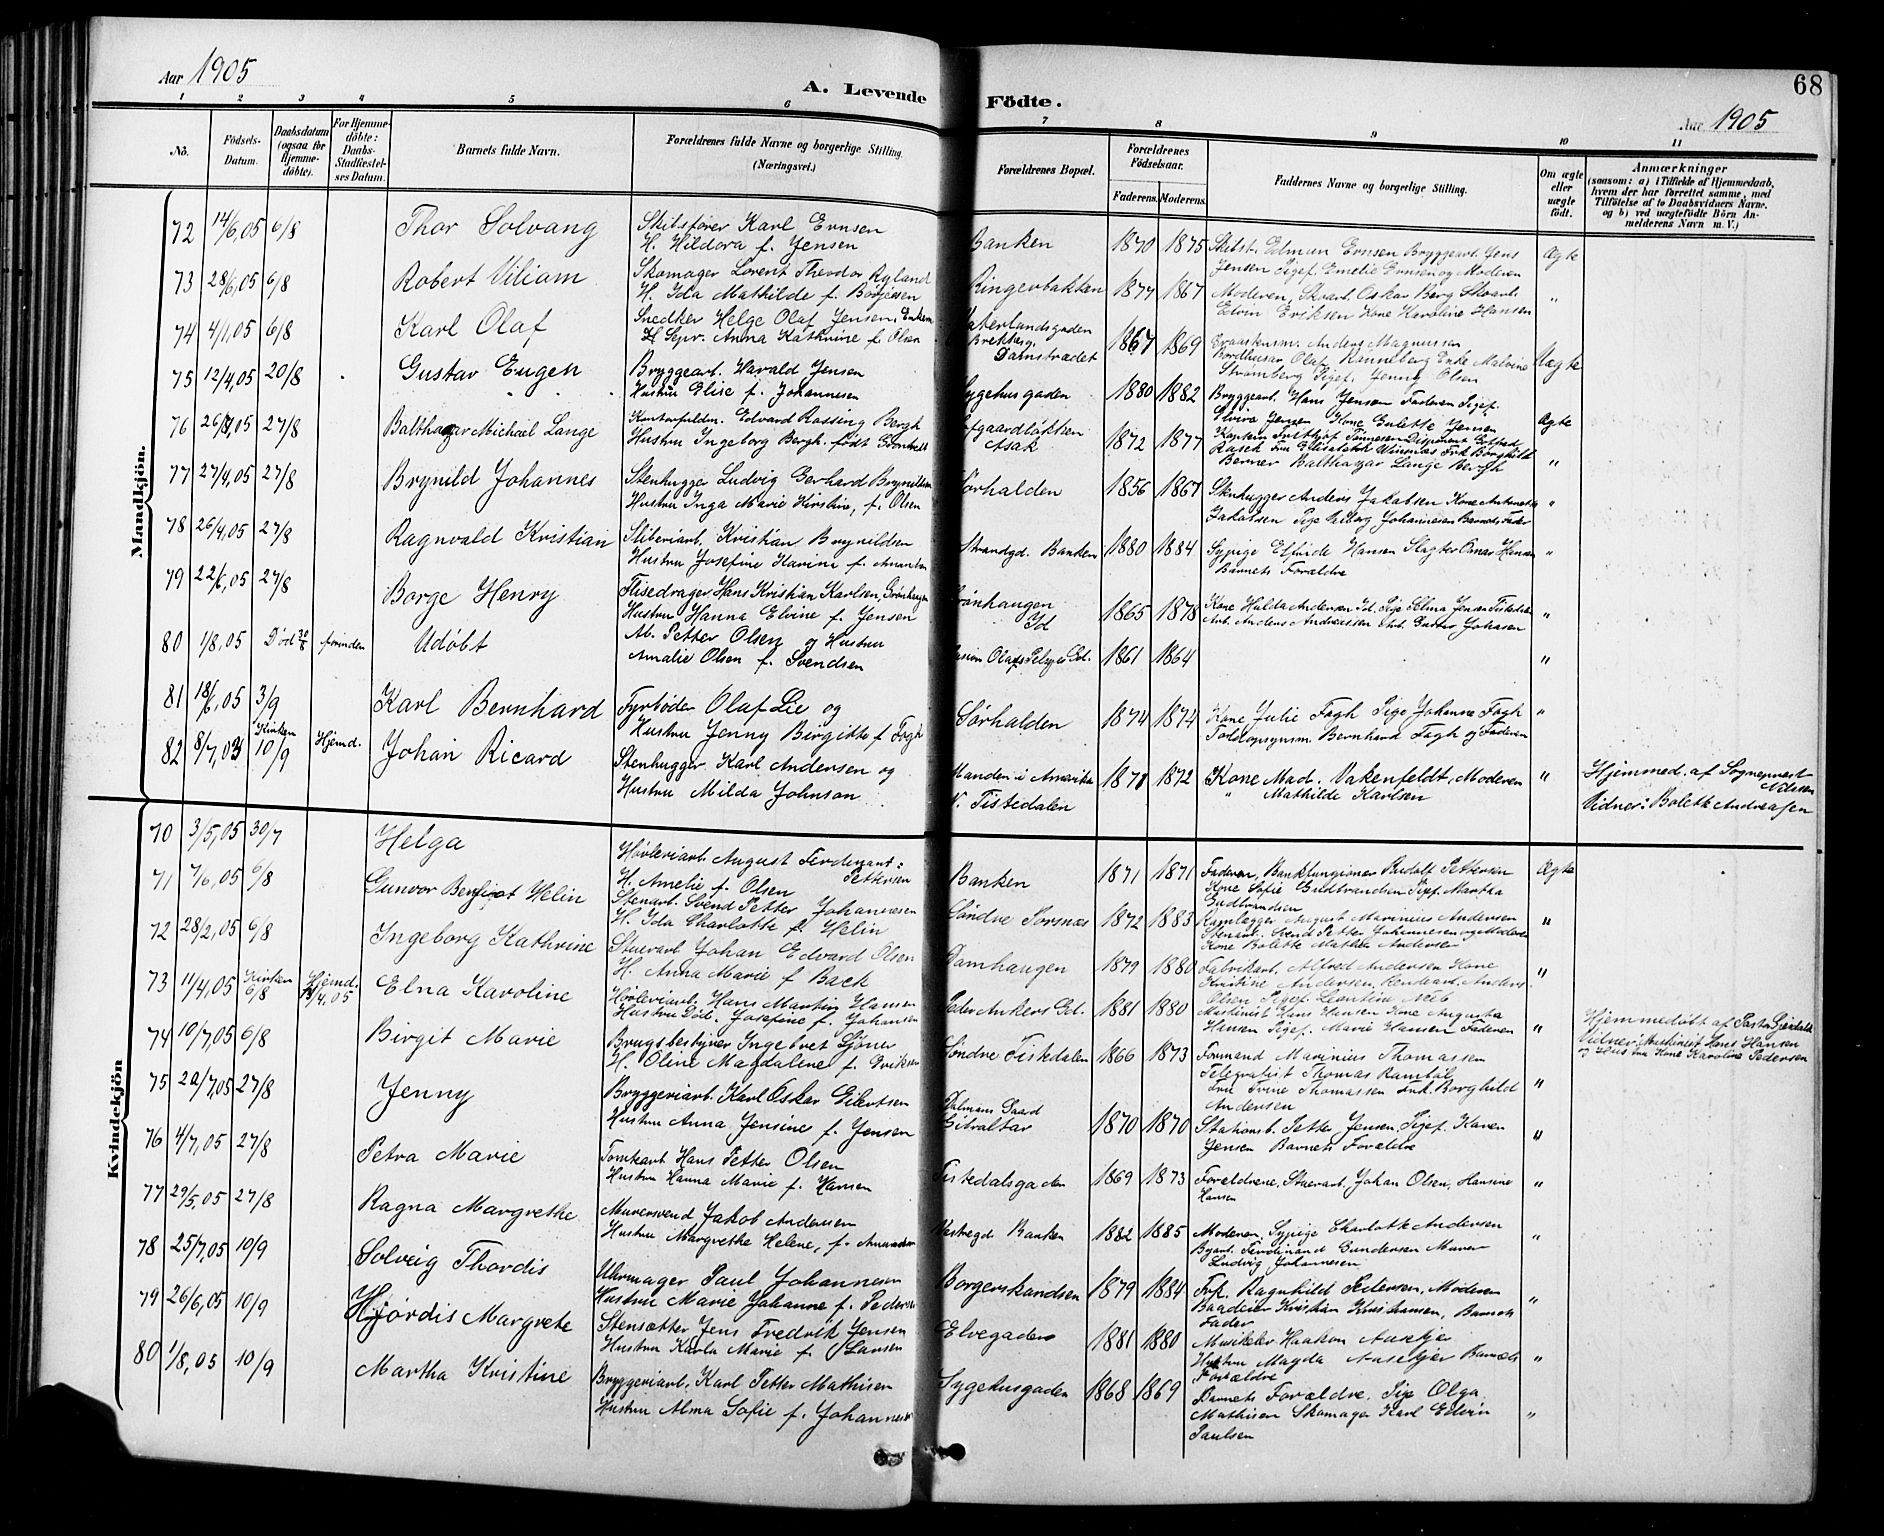 Aar 1905
A. Levende
Födte.
68
Aar 1905
1 2 3 4 5 6 7 8 9 10 11
No.
Födsels-
Datum.
Daabsdatum
(ogsaa för
Hjemme-
döbte).
For Hjemme-
döbte:
Daabs-
Stadfæstel-
ses Datum.
Barnets fulde Navn.
Forældrenes fulde Navne og borgerlige Stilling
(Næringsvei.)
Forældrenes Bopæl.
Forældrenes
Födselsaar.
Faderens. Moderens.
Faddernes Navne og borgerlige Stilling.
Om ægte
eller
uægte
födt.
Anmærkninger
(saasom: a) i Tilfælde af Hjemmedaab,
hvem der har forrettet samme, med
Tilföielse af to Daabsvidners Navne.
og b) ved uægtefödte Börn An-
melderens Navn m. V.)
Mandkjön.
72 14/6,05 6/8 Thor Solvang Skibsfører Karl Evnsen
H. Hildora f. Jensen
Banken 1870 1875 Skibst. Edmun Evnsen Bryggearb. Jens
Jensen Pigef. Emelie Evnsen og Moderen
Ægte
73 28/6,05 6/8 Robert Viliam Skomager Lorent Theodor Ryland
H. Ida Mathilde f. Borgesen
Ringerbakken 1877 1867 Moderen, Skoarb. Oskar Berg Skoarb.
Edvin Eriksen Kone Karoline Hansen
"
74 4/1,05 6/8 Karl Olaf Snedker Helge Olaf Jensen, Enkem
H. Sepr. Anna Kathrine f. Olsen
Damstrædet 1867 1869 Anders Magnussen
Olaf Ranneberg Enke Malvine
Strømberg Pigef. Jenny Olsen
Uægte
75 12/4,05 20/8 Gustav Eugen Bryggearb. Harald Jensen
Hustru Elise f. Johannesen
Sygehusgaden 1880 1882 Bryggearb. Hans Jensen Faderen Pigef.
Elvira Jensen Kone Gulette Jensen
Ægte
76 27/8 Balthazar Michael Lange Kontorfuldm. Edvard Rassing Bergh
Hustru Ingeborg Bergh født
Asak 1872 1877
Berner Balthazar Lange Bergh
"
77 27/4,05 27/8 Brynild Johannes Stenhugger Ludvig Gerhard Brynildsen
Hustru Inga Marie Kirstine, f. Olsen
Sørhalden 1856 1867 Stenhugger Anders Jakobsen Kone
Jakobsen Pige Johannesen Barnets Fader
"
78 26/4,05 27/8 Ragnvald Kristian Sliberiarb. Kristian Brynildsen
Hustru Josefine Karine f.
Strandgd. Banken 1880 1884 Sypige Elfride Hansen Slagter Hansen
Barnets Forældre
"
79 22/6,05 27/8 Borge Henry Flisedrager Hans Kristian Karlsen, Grønhaugen
Hustru Hanna Elvine f. Jensen
Grønhaugen
Id
1865 1878 Kone Hulda Andersen Id. Pige Selma Jensen Tistedalen
Arb. Anders Andreassen Johnsen
"
80 1/8,05 Død 20/8 Udøbt Ab. Petter Olsen og Hustru
Amalie Olsen f. Svendsen
1861 1864
"
81 18/6,05 3/9 Karl Bernhard Fyrbøder Olaf Lie og
Hustru Jenny Birgitte f. Fagh
Sørhalden 1874 1874 Kone Julie Fagh Pige Johanne Fagh
Toldopsynsm. Bernhard Fagh og Faderen
"
82 8/7,03 Kirken 10/9 Hjemd. Johan Ricard Stenhugger Karl Andersen og
Hustru Milda Johnson
Manden i Amerika
N. Tistedalen
1871 1872 Kone Mad. Vakenfeldt, Moderen
" Mathilde Karlsen
"
Hjemmed. af Sogneprest
Nilssen
Vidner: Bolette Andreasen
Kvindekjön
70 3/5,05 30/7 Helga Høvleriarb. August Ferdinant:
Pettersen
H. Amelie f. Olsen
Banken 1871 1871 Faderen, Bankfungionær Rudolf Pettersen
Kone Sofie Gudbrandsen Pigef. Martha
Gudbrandsen
Ægte
71 7/6,05 6/8 Gunvor Bergiot Helin Stenarb. Svend Petter Johannesen
H. Ida Charlotte f. Helin
Søndre Sorsnæs 1872 1883 August Marinius Andersen
Stenarb. Svend Petter Johannesen og Moderen
Kone Bolette Mathea Andersen
"
72 28/2,05 6/8 Ingeborg Kathrine Stuerarb Johan Edvard Olsen
H. Anna Marie f. Back
Damhaugen 1879 1880 Fabrikarb. Alfred Andersen Kone
Kristine Andersen,
Olsen Pigef. Leontine
"
73 11/4,05 Kirken 6/8 Hjemd. /4,05 Elna Karoline Høvleriarb. Hans Martin Hansen
Hustru Død. Josefine f. Johansen
Peder Ankers Gd. 1881 1880 Maskinist Hans Hansen Kone Augusta
Hansen Pigef. Marie Hansen Faderen
"
Hjemmedøbt af Pastor
Vidner: Maskinist Hans Hansen
og Hustru Kone Karoline Pedersen
74 10/7,05 6/8 Birgit Marie Brugsbestyrer Ingebret Sjøner
H. Oline Magdalene f. Eriksen
Søndre Tistedalen 1866 1873 Formand Marinius Thomassen
Telegrafist Thomas Ramtål
Fru Trine Thomassen Frk. Borghild
Andersen
"
75 22/7,05 27/8 Jenny Bryggeriarb. Karl Oskar Eilertsen
Hustru Anna Jensine f. Jensen
Gibraltar 1870 1870 Stationsb. Petter Jensen. Pigef. Karen
Jensen Barnets Forældre
"
76 4/7,05 27/8 Petra Marie Tomtearb Hans Petter Olsen
Hustru Hanna Marie f. Hansen
Tistedalsgaden 1869 1873 Forældrene, Stuerarb. Johan Olsen, Hansine
Hansen
"
77 29/5,05 27/8 Ragna Margrethe Murersvend Jakob Andersen
Hustru Margrethe Helene, f. Amundsen
Vestregd. Banken 1882 1885 Moderen, Sypige Charlotte Andersen
Byarb. Ferdinand Gundersen Murer
Ludvig Johannesen
"
78 25/7,05 10/9 Solveig Thordis Uhrmager Paul Johannesen
Hustru Marie Johanne f. Pedersen
Borgerskandsen 1879 1884 Frk. Ragnhild Pedersen, Moderen
Kristian Kristiansen, Barnets
Fader
"
79 26/6,05 10/9 Hjørdis Margrete Stensætter Jens Fredrik Jensen
Hustru Karla Marie f. Larsen
Elvegaden 1881 1880 Musikeler Haakon Aasekjer
Hustru Magda Aasekjer Barnets
Forældre
"
80 1/8,05 10/9 Martha Kristine Bryggeriarb. Karl Petter Mathisen
Hustru Alma Sofie f. Johannesen
Sygehusgaden 1868 1869 Barnets Forældre, Pige Olga
Mathisen Skomager Karl Edvin
Paulsen
"